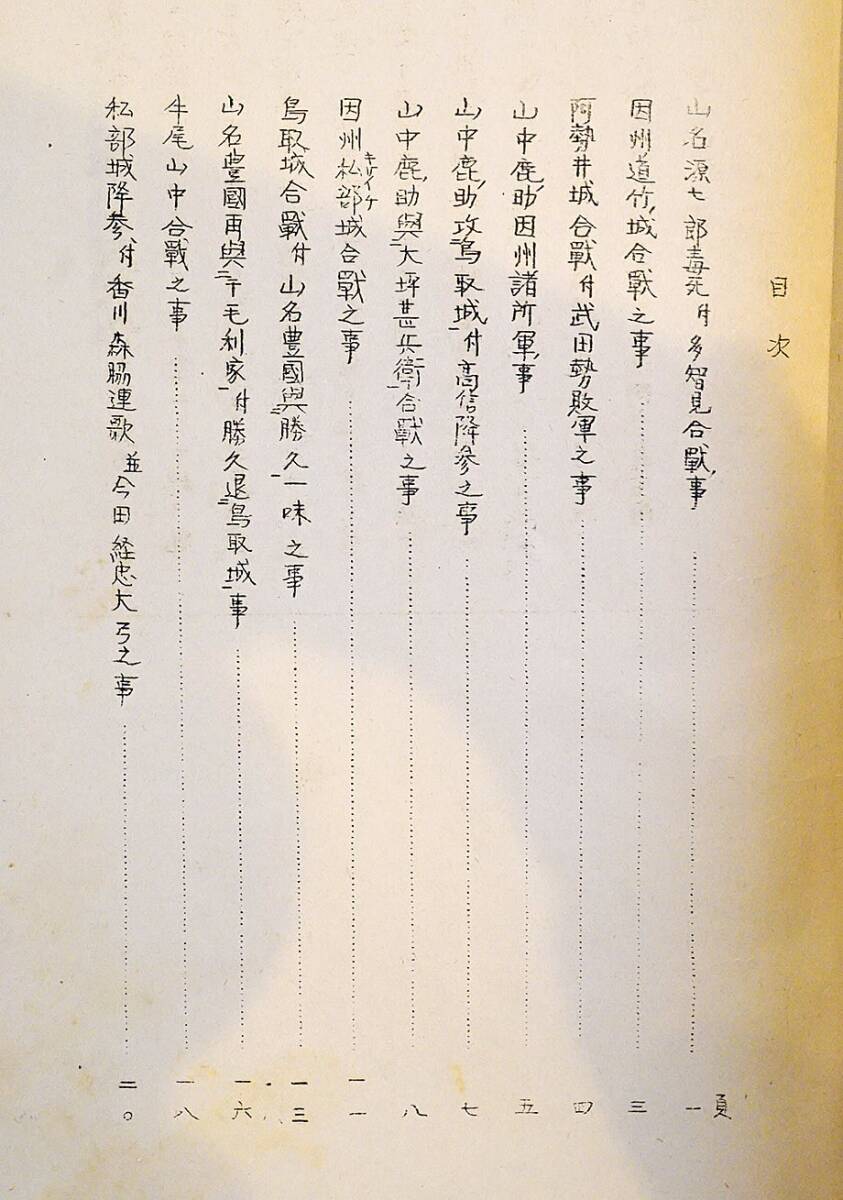 目次
頁
山名源七郎毒死付多智見合戰ノ事……一
因州道竹ノ城合戰之事……三
阿勢井城合戰付武田勢敗軍之事……四
山中鹿ノ助因州諸所軍ノ事……五
山中鹿ノ助攻鳥取城付高信降參之事……七
山中鹿ノ助與大坪甚兵衛合戰之事……八
因州私部キサイケ城合戰之事……一一
鳥取城合戰付山名豊國與勝久一味之事……一三
山名豊國再與于毛利家付勝久退鳥取城事……一六
牛尾山中合戰之事……一八
私部城降參付香川森脇連歌並今田経忠大弓之事……二〇